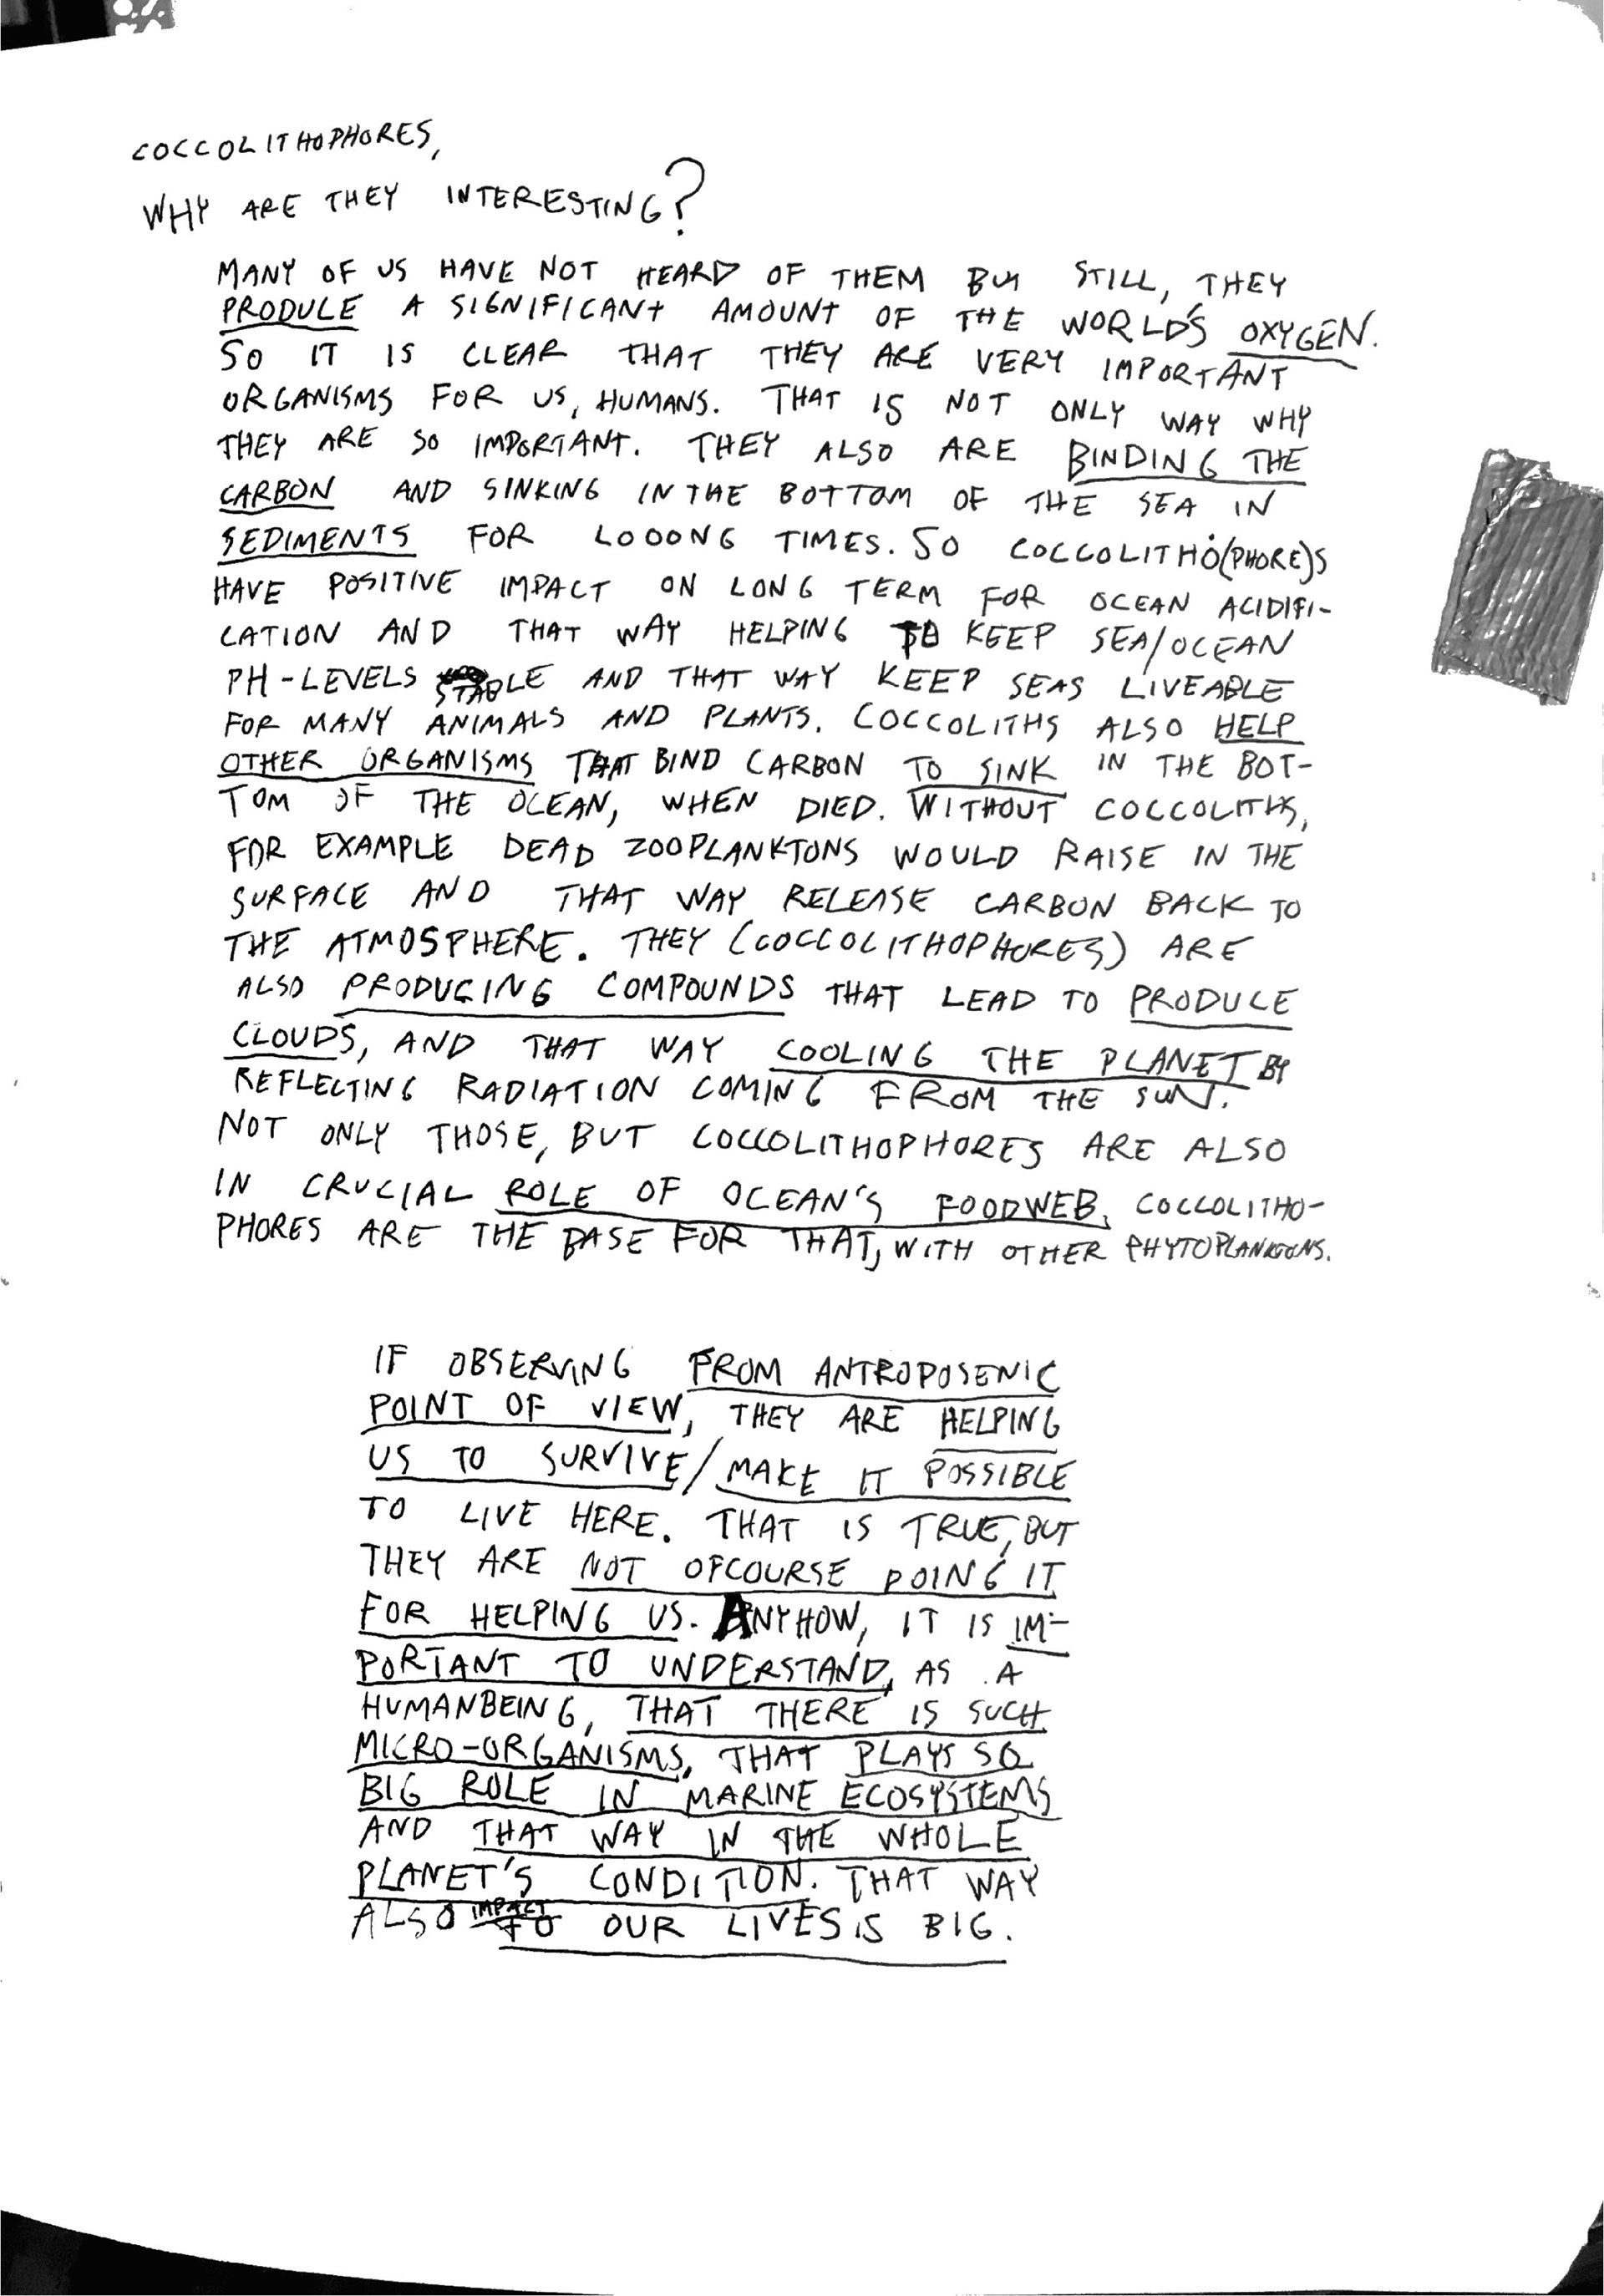 COCCOLITHOPHORES,
WHY ARE THEY INTERESTING?
MANY OF US HAVE NOT HEARD OF THEM BUT STILL, THEY
PRODUCE A SIGNIFICANT AMOUNT OF THE WORLD'S OXYGEN.
SO IT IS CLEAR THAT THEY ARE VERY IMPORTANT
ORGANISMS FOR US, HUMANS. THAT IS NOT ONLY WAY WHY
THEY ARE SO IMPORTANT. THEY ALSO ARE BINDING THE
CARBON AND SINKING IN THE BOTTOM OF THE SEA IN
SEDIMENTS FOR LOOONG TIMES. SO COCCOLITHO(PHORE)S
HAVE POSITIVE IMPACT ON LONG TERM FOR OCEAN ACIDIFI-
CATION AND THAT WAY HELPING TO KEEP SEA/OCEAN
PH-LEVELS STABLE AND THAT WAY KEEP SEAS LIVEABLE
FOR MANY ANIMALS AND PLANTS. COCCOLITHS ALSO HELP
OTHER ORGANISMS THAT BIND CARBON TO SINK IN THE BOT-
TOM OF THE OCEAN, WHEN DIED. WITHOUT COCCOLITHS,
FOR EXAMPLE DEAD ZOOPLANKTONS WOULD RAISE IN THE
SURFACE AND THAT WAY RELEASE CARBON BACK TO
THE ATMOSPHERE. THEY (COCCOLITHOPHORES) ARE
ALSO PRODUCING COMPOUNDS THAT LEAD TO PRODUCE
CLOUDS, AND THAT WAY COOLING THE PLANET BY
REFLECTING RADIATION COMING FROM THE SUN.
NOT ONLY THOSE, BUT COCCOLITHOPHORES ARE ALSO
IN CRUCIAL ROLE OF OCEAN'S FOODWEB, COCCOLITHO-
PHORES ARE THE BASE FOR THAT, WITH OTHER PHYTOPLANKTONS.
IF OBSERVING FROM ANTROPOSENIC
POINT OF VIEW, THEY ARE HELPING
US TO SURVIVE/MAKE IT POSSIBLE
TO LIVE HERE. THAT IS TRUE, BUT
THEY ARE NOT OFCOURSE DOING IT
FOR HELPING US. ANYHOW, IT IS IM-
PORTANT TO UNDERSTAND, AS A
HUMANBEING, THAT THERE IS SUCH
MICRO-ORGANISMS, THAT PLAYS SO
BIG ROLE IN MARINE ECOSYSTEMS
AND THAT WAY IN THE WHOLE
PLANET'S CONDITION. THAT WAY
ALSO IMPACT TO OUR LIVES IS BIG.